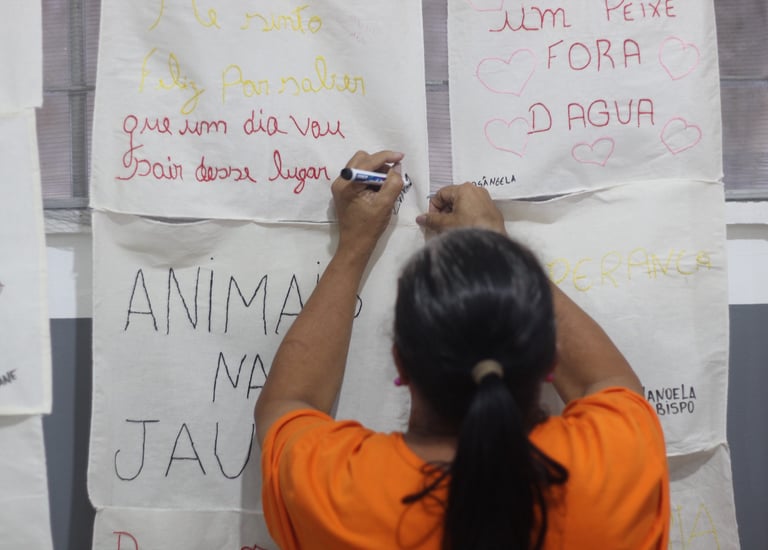 Me sinto
feliz por saber
que um dia vou
sair desse lugar
UM PEIXE
FORA
D AGUA
OSÂNGELA
ANIMAIS
NA
JAU
PERANÇA
MANOELA
BISPO